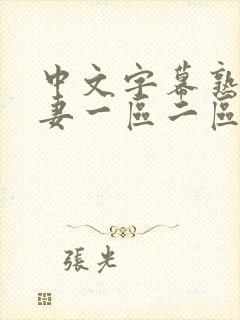 中文字幕熟
妻一區二區
張光